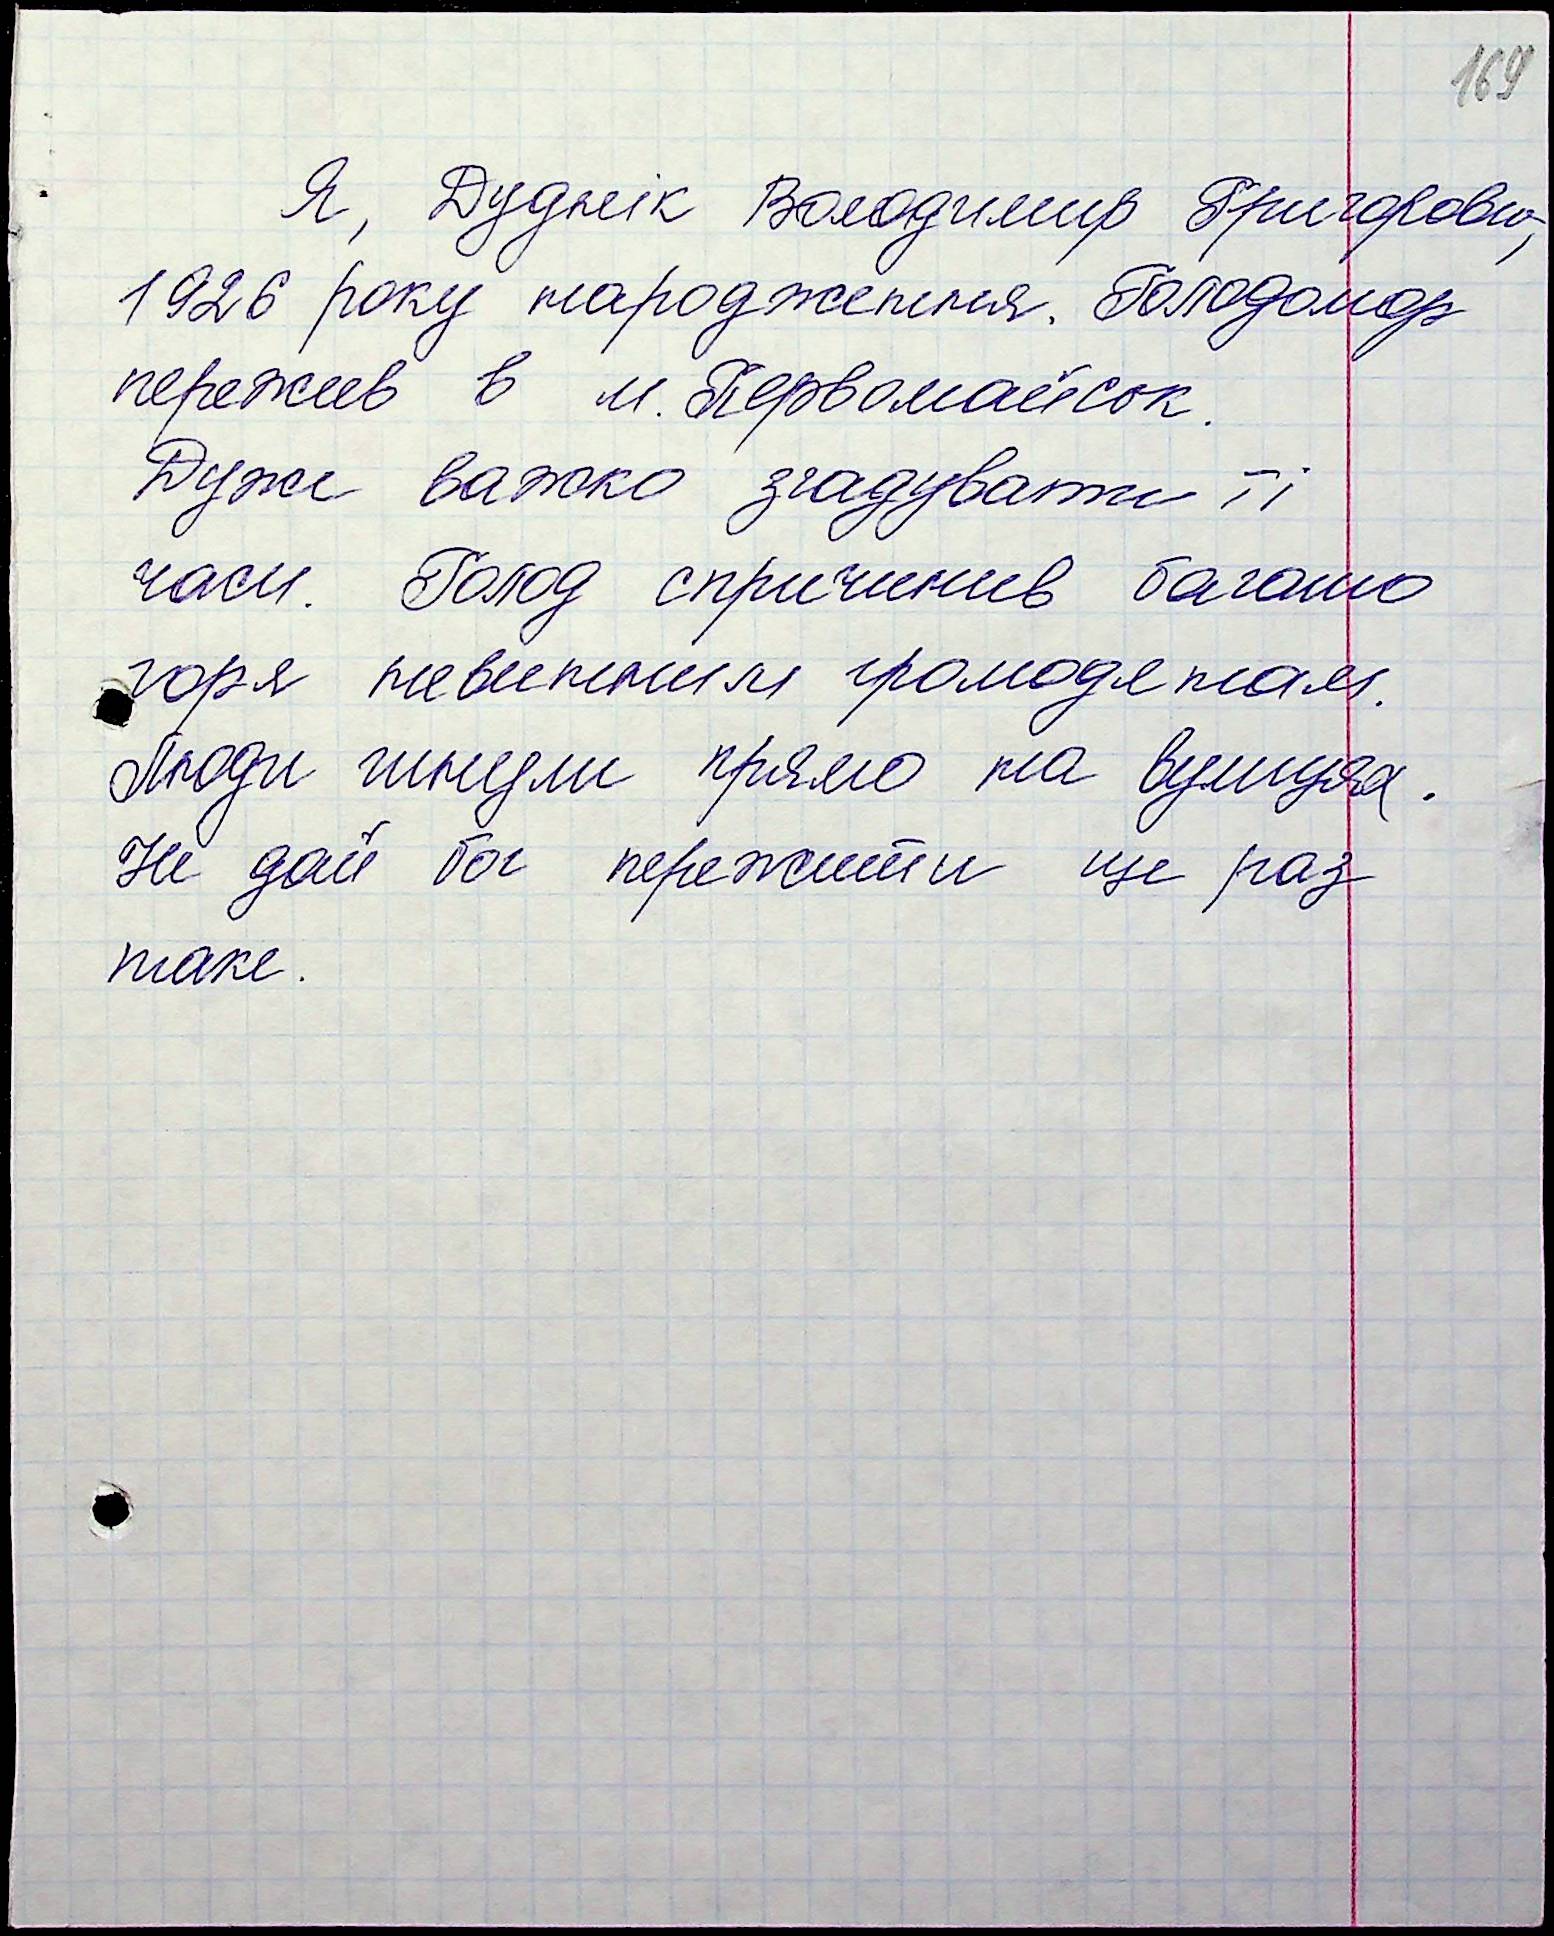 169
Я, Дуднік Володимир Григорович,
1926 року народження. Голодомор
пережив в м. Первомайськ.
Дуже важко згадувати ті
часи. Голод спричинив багато
горя невинним громодянам.
Люди гинули прямо на вулицях.
Не дай бог пережити ще раз
таке.